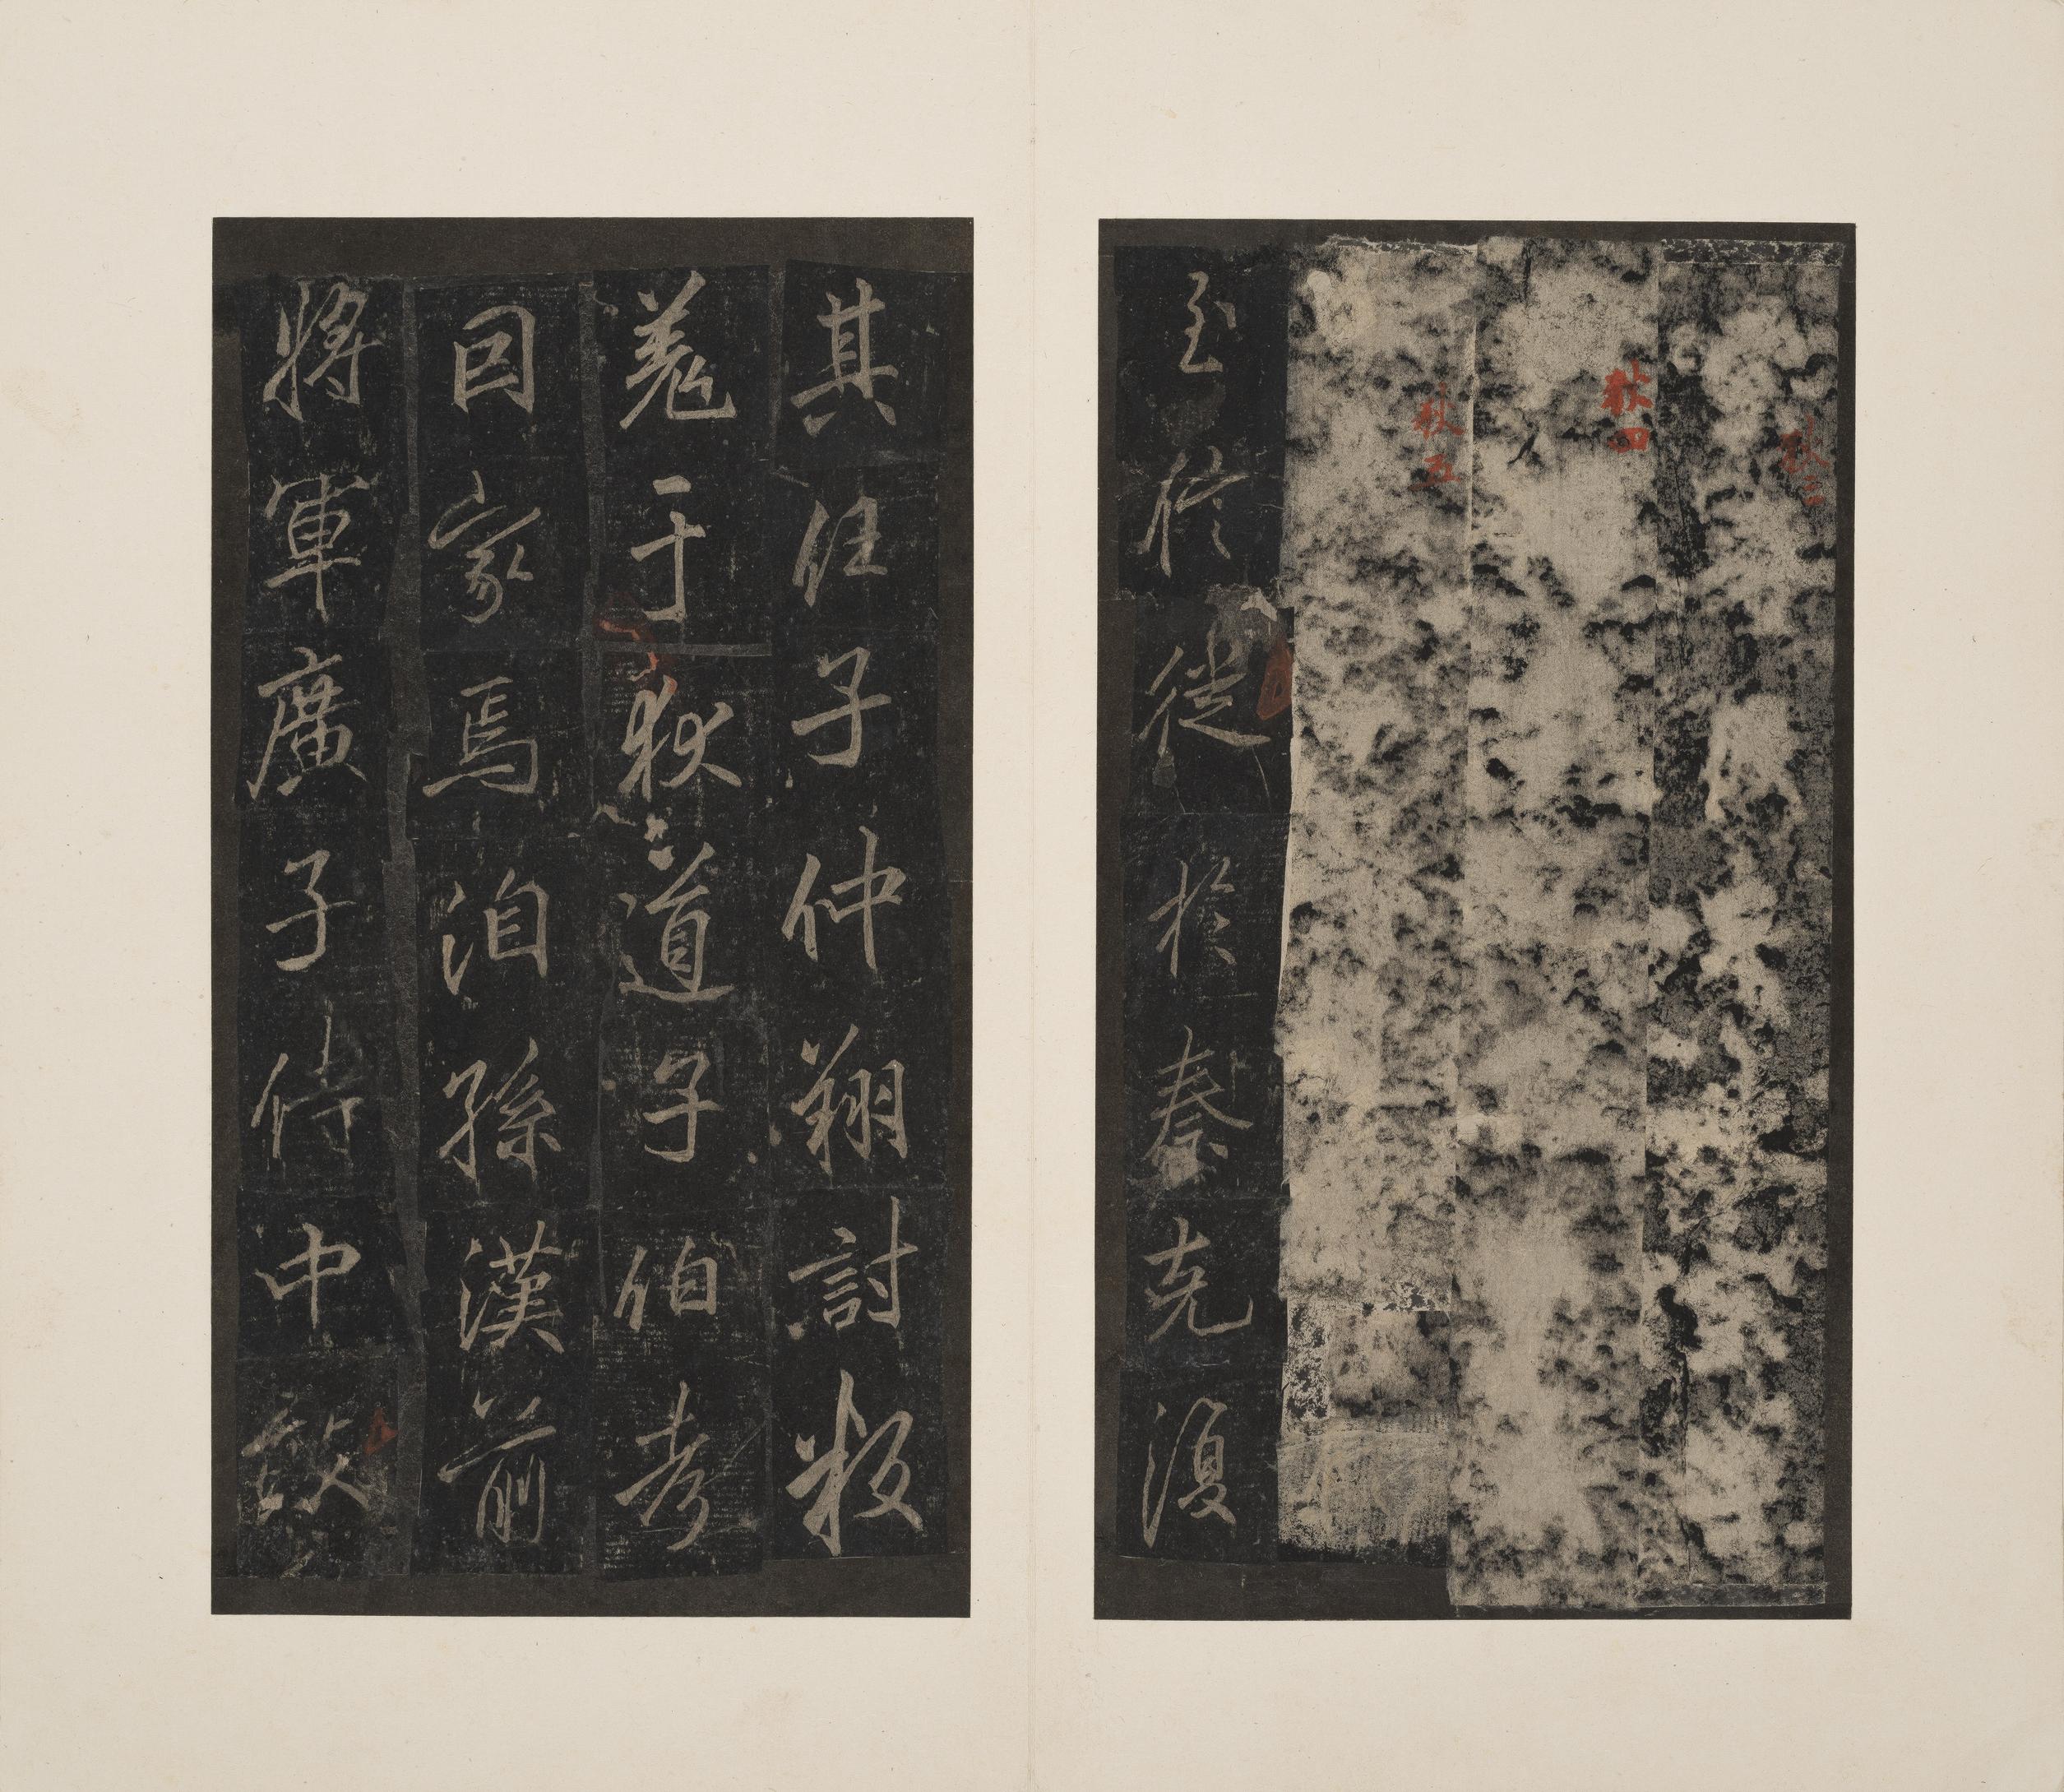 秋三
秋四
秋五
至信徙於秦克復
其任子仲翔討叛
羌于狄道子伯考
因家焉洎孫漢前
將軍廣子侍中敢